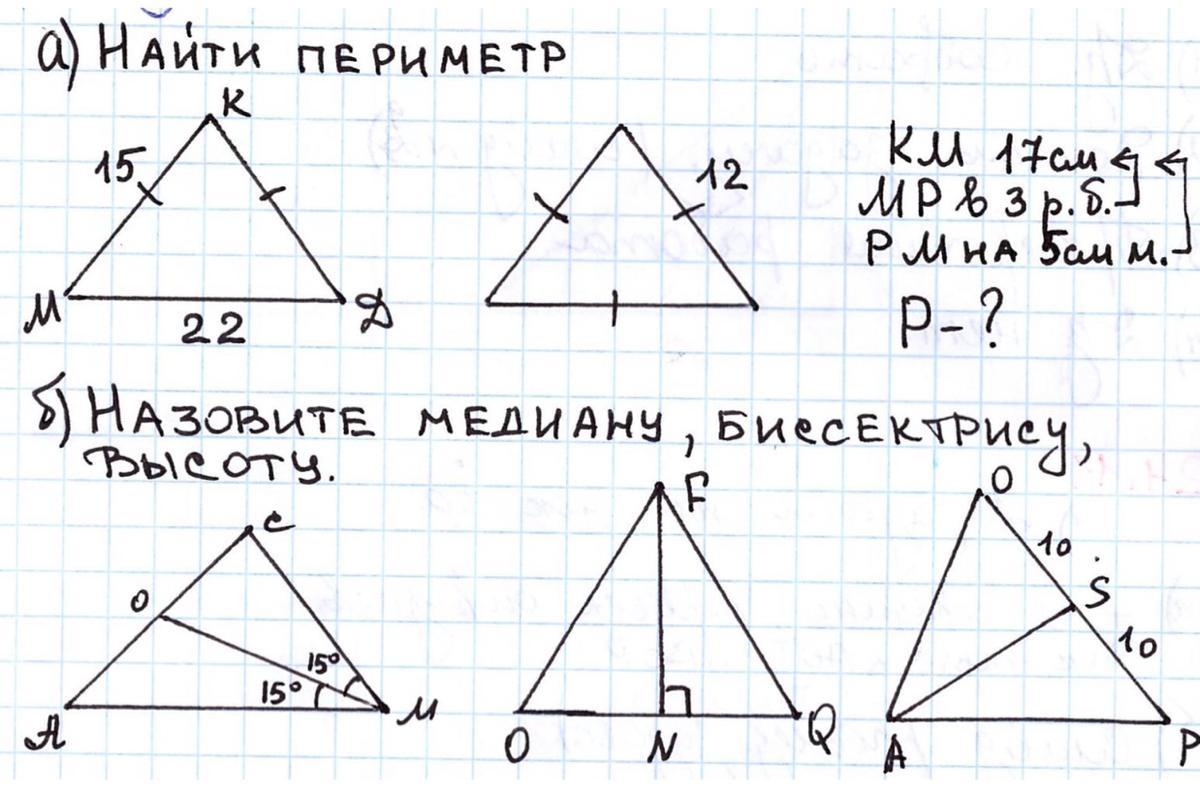 а) НАЙТИ ПЕРИМЕТР
К
15
М
22
Д
12
КМ 17см
МР в 3 р. б.
РМ на 5см м.
Р-?
б) НАЗОВИТЕ МЕДИАНУ, БИССЕКТРИСУ,
ВЫСОТУ.
С
О
15°
15°
А
М
F
O
N
Q
О
10
S
10
А
Р